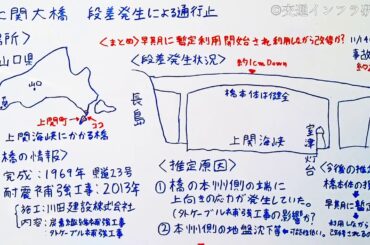 ©交通インフラ
上関大橋 段差発生による通行止
場所〉
山口県
山口
上関町
ココ
上関海峡にかかる橋
橋の情報〉
完成：1969年 県道23号
耐震補強工事：2013年
施工：川田建設株式会社
内容：炭素繊維補強工事
外ケーブル補強工事
〈まとめ〉早期に暫定利用開始され利用しながら改修か?
11/14
事故
〈段差発生状況〉
約71cm Down
橋本体は健全
長島
上関海峡
室津
灯台
〈推定原因〉
①橋の本州側の端に
上向きの応力が発生していた。
(外ケーブル補強工事の影響か?
②本州側の地盤沈下等
〈今後の推
橋本体の
早期に暫定
利用しながら